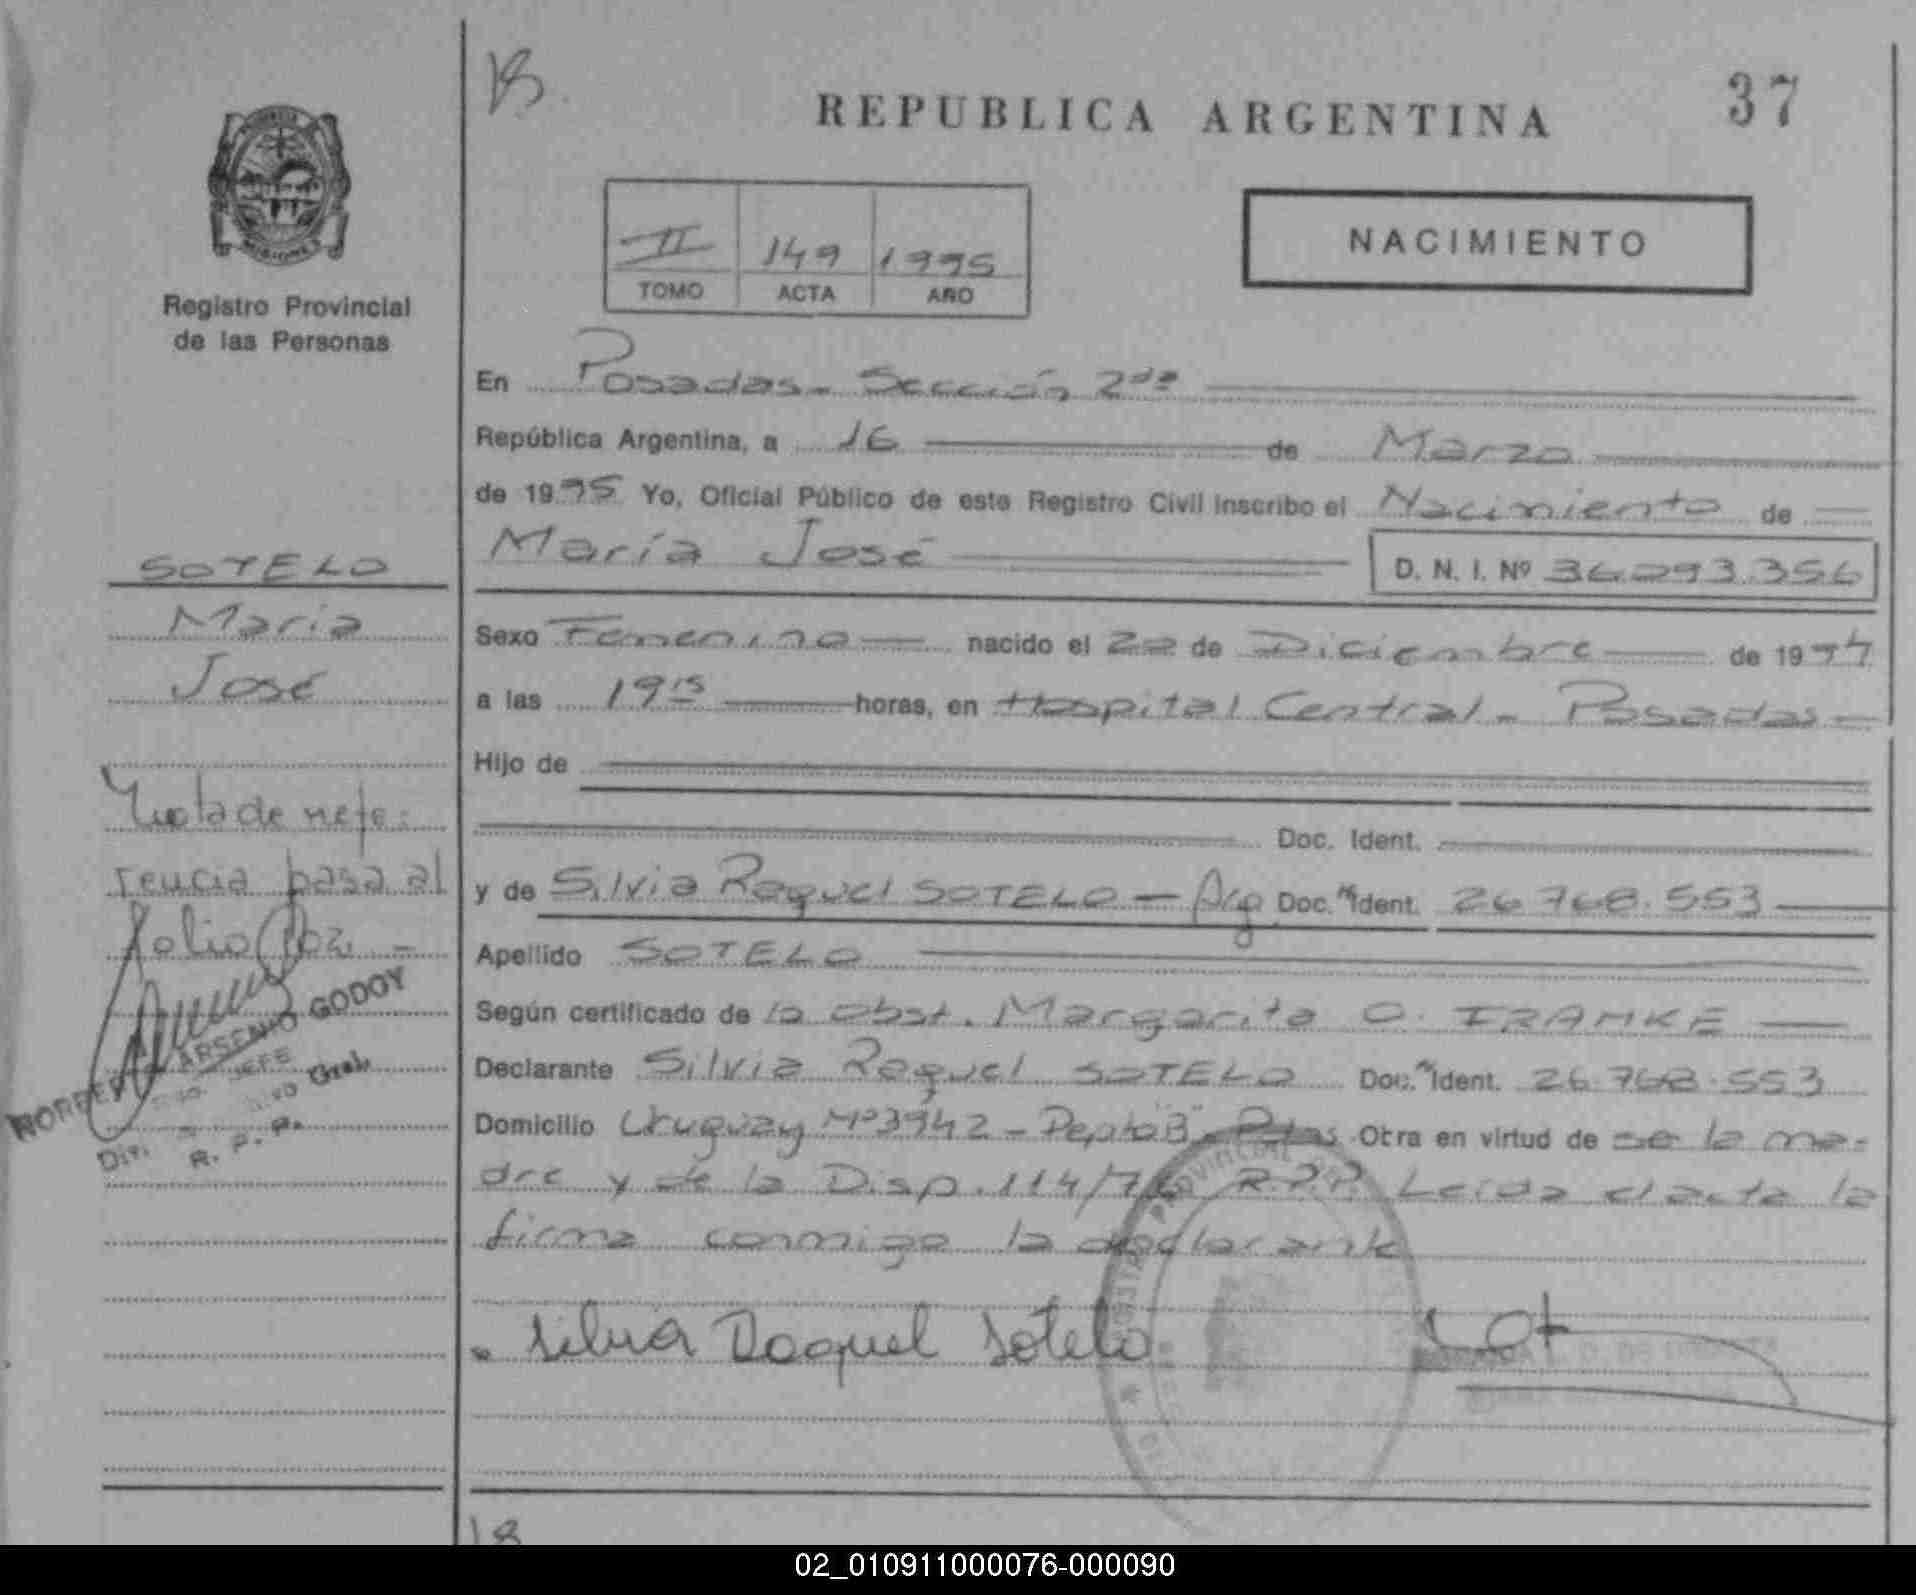 37
REPUBLICA ARGENTINA
NACIMIENTO
II 149 1995
TOMO ACTA AÑO
Registro Provincial
de las Personas
SOTELO
María
José
Nota de refe:
rencia pasa al
folio 202 -
ARSENIO GODOY
JEFE
Gral.
R. P. P.
En Posadas - Sección 2da
República Argentina, a 16 de Marzo
de 1995 Yo, Oficial Público de este Registro Civil inscribo el Nacimiento de
María José D. N. I. Nº 36.093.356
Sexo Femenino nacido el 22 de Diciembre de 1994
a las 19 15 horas, en Hospital Central - Posadas -
Hijo de
Doc. Ident.
y de Silvia Raquel SOTELO - Arg. Doc. Ident. 26.768.553
Apellido SOTELO
Según certificado de la Obst. Margarita O. FRAMKE
Declarante Silvia Raquel SOTELO Doc. Ident. 26.768.553
Domicilio Uruguay Nº 3942 - Depto "B" - Pdas Obra en virtud de se la ma-
dre y de la Disp. 114/76 R.P.P. Leída el acta la
firma conmigo la declarante
Silvia Raquel Sotelo
18
02_010911000076-000090